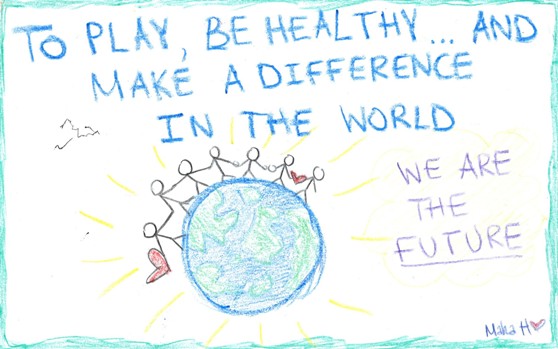 TO PLAY, BE HEALTHY... AND
MAKE A DIFFERENCE
IN THE WORLD
WE ARE
THE
FUTURE
Maha H